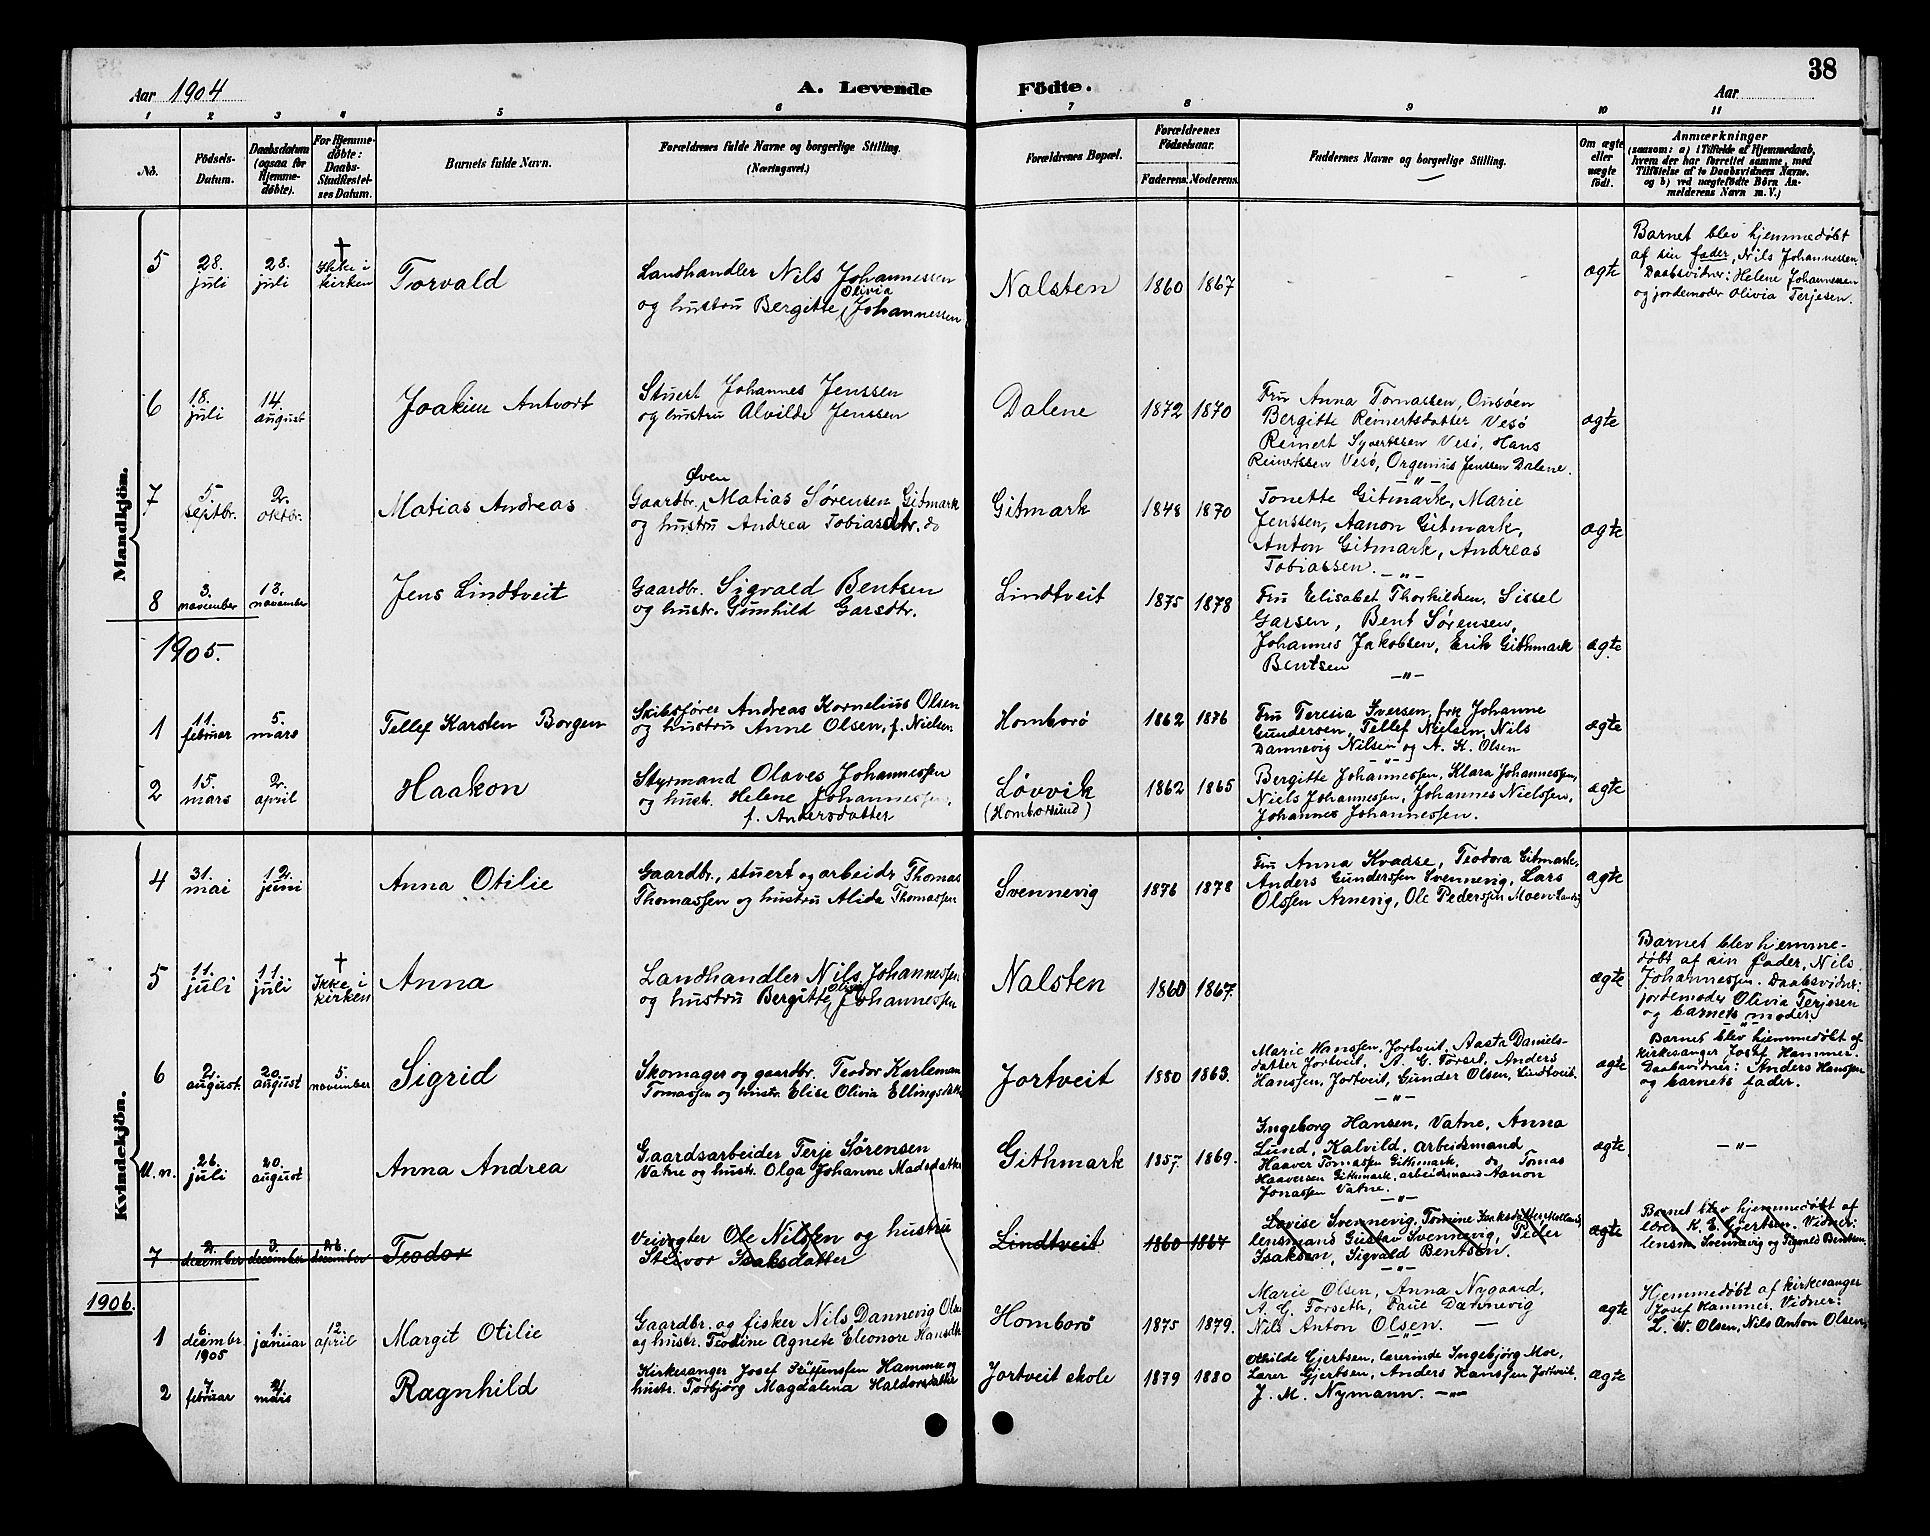 38
Aar 1904
A. Levende
Födte.
Aar
1 2 3 4 5 6 7 8 9 10 11
No.
Födsels-
Datum.
Daabsdatum
(ogsaa for
Hjemme-
døbte).
For Hjemme-
døbte:
Daabs-
Stadfæstel-
ses Datum.
Barnets fulde Navn.
Forældrenes fulde Navne og borgerlige Stilling.
(Næringsvei.)
Forældrenes Bopæl.
Forældrenes
Födselsaar.
Faderens. Moderens.
Faddernes Navne og borgerlige Stilling.
Om ægte
eller
uægte
født.
Anmærkninger
(saasom: a) i Tilfælde af Hjemmedaab,
hvem der har forrettet samme, med
Tilføielse af to Daabsvidners Navne.
og b) ved uægtefødte Börn An-
melderens Navn m. V.)
Mandkjön.
5
28.
juli
28.
juli
†
Ikke i
kirken
Torvald
Landhandler Nils Johannessen
og hustru Bergitte Olivia Johannessen
Nalsten
1860 1867
- - - -
ægte
Barnet blev hjemmedøbt
af sin fader, Nils Johannessen
Daabsvidner: Helene Johannessen
og jordemoder Olivia Terjesen.
6
18.
juli
14.
august
Joakim Antvort
Stuert Johannes Jenssen
og hustru Alvilde Jenssen
Dalene
1872 1870
Fru Anna Tomassen, Onsøen
Bergitte Reinertsdatter Vesø
Reinert Syvertssen Vesø, Hans
Reinertssen Vesø, Orgenius Jenssen Dalene.
-"-
ægte
7
5.
septbr.
2.
oktbr.
Matias Andreas
Øven
Gaardbr. Matias Sørensen Gitmark
og hustru Andrea Tobiasdtr. do
Gitmark
1848 1870
Tonette Gitmark, Marie
Jenssen, Aanon Gitmark,
Anton Gitmark, Andreas
Tobiassen. -"-
ægte
8
3.
november
13.
november
Jens Lindtveit
Gaardbr. Sigvald Bentsen
og hustr. Gunhild Garsdtr.
Lindtveit
1875 1878
Fru Elisabet Thorkildsen, Sissel
Garsen, Bent Sørensen,
Johannes Jakobsen, Erik Githmark
Bentsen -"-
ægte
1905.
1
11.
februar
5.
mars
Tellef Karsten Borgen
Skibsfører Andreas Kornelius Olsen
og hustru Anne Olsen, f. Nielsen.
Homborö
1862 1876
Fru Teresia Iversen, frk Johanne
Gundersen, Tellef Nielsen, Nils
Dannevig Nilsen og A. K. Olsen
-"-
ægte
2
15.
mars
2.
april
Haakon
Styrmand Olaves Johannessen
og hustr. Helene Johannessen,
f. Andersdatter
Løvvik
(Homborsund)
1862 1865
Bergitte Johannessen, Klara Johannessen,
Niels Johannessen, Johannes Nielssen,
Johannes Johannessen.
ægte
Kvindekjön.
4
31.
mai
12.
juni
Anna Otilie
Gaardbr., stuert og arbeidr Thomas
Thomassen og hustru Alide Thomassen
Svennevig
1876 1878
Fru Anna Kvaase, Teodora Gitmark,
Anders Gunderssen Svennevig, Lars
Olssen Arnevig, Ole Pederssen Moen
ægte
5
11.
juli
11.
juli
†
Ikke i
kirken
Anna
Landhandler Nils Johannessen
og hustru Bergitte Olivia Johannessen
Nalsten
1860 1867.
ægte
Barnet blev hjemme-
døbt af sin fader, Nils
Johannessen. Daabsvidner:
jordemoder Olivia Terjesen
og barnets moder.
-"-
6
2.
august.
20.
august
5.
november
Sigrid
Skomager og gaardbr. Teodor Karleman
Tomassen og hustr. Elise Olivia Ellingsdtr
Jortveit
1880 1863.
Marie Hanssen, Jortveit, Aasta Daniels-
datter Jortveit, A. G. Forset, Anders
Hanssen, Jortveit, Gunder Olsen, Lindtveit.
-"-
ægte
Barnet blev hjemmedøbt af
kirkesanger Josef Hammer.
Daabsvidner: Anders Hanssen
og barnets fader.
U.n.
26.
juli
20.
august
Anna Andrea
Gaardsarbeider Terje Sørensen
Vatne og hustr. Olga Johanne Madsdatter
Githmark
1857. 1869.
Ingeborg Hansen, Vatne, Anna
Lund, Kalvild, arbeidsmand
Haaver Tomassen Githmark, do Tomas
Haaversen Githmark, arbeidsmand Aanon
Jonassen Vatne.
-"-
ægte
-"-
7
2.
december
3.
december
26.
december
Teodor
Veivogter Ole Nilssen og hustru
Steivor Isaksdatter
Lindtveit
1860 1864
Lovise Svennevig, Tomine Isaksdatter, Molland,
lensmand Gustav Svennevig, Peder
Isaksen, Sigvald Bentsen.
-"-
ægte
Barnet blev hjemmedøbt af
lærer K. E. Gjertsen. Vidner:
lensm. Svennevig og Sigvald Bentsen.
1906.
1
6.
decembr.
1905
1.
januar
12.
april
Margit Otilie
Gaardbr. og fisker Nils Dannevig Olsen
og hustr. Teodine Agnete Eleonore Hansdtr
Homborö
1875 1879.
Marie Olsen, Anna Nygaard,
A. G. Forseth, Paul Dannevig
Nils Anton Olsen.
-"-
ægte
Hjemmedøbt af kirkesanger
Josef Hammer. Vidner:
L. W. Olsen, Nils Anton Olsen,
2
7.
februar
mars
Ragnhild
Kirkesanger Josef Hammer og
hustr. Torbjørg Magdalina Haldorsdatter
Jortveit skole
1879 1880
Othilde Gjertsen, lærerinde Ingebjørg Moe,
Lærer Gjertsen, Anders Hanssen Jortveit,
J. M. Nymann. -"-
ægte